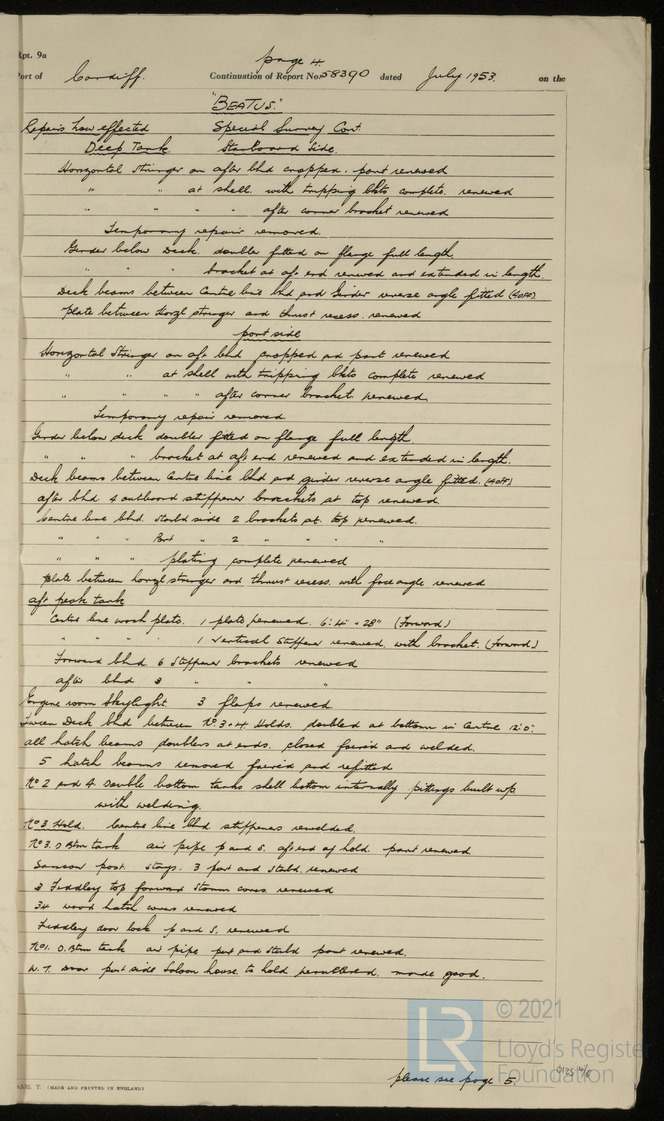 Rpt. 9a
page 4.
Port of Cardiff. Continuation of Report No. 58390 dated July 1953. on the
"BEATUS."
Repairs how effected Special Survey Cont.
Deep Tank. Starboard Side.
Horizontal Stringer on after bhd cropped. part renewed
" " at shell with tripping bkts complete. renewed
" " " " after corner bracket renewed
Temporary repair removed.
Girder below Deck. doubler fitted on flange full length.
" " " bracket at aft end renewed and extended in length.
Deck beams between Centre line bhd and Girder reverse angle fitted (4 off).
plate between Horzl stringer and thrust recess. renewed
port side
Horizontal Stringer on aft bhd cropped and part renewed
" " at shell with tripping bkts complete renewed
" " " " after corner bracket renewed.
Temporary repair removed.
Girder below deck doubler fitted on flange full length.
" " " bracket at aft end renewed and extended in length.
Deck beams between Centre line bhd and girder reverse angle fitted. (4 off)
after bhd. 4 outboard stiffener brackets at top renewed.
Centre line bhd. starbd side 2 brackets at top renewed.
" " " Port " 2 " " " "
" " " plating complete renewed
plate between horzl stringer and thrust recess. with face angle renewed
aft peak tank
Centre line wash plate. 1 plate renewed. 6'.4" × 28" (Forward)
" " " " 1 vertical stiffener renewed. with bracket. (Forward)
Forward bhd. 6 stiffener brackets renewed
after bhd 3 " " "
Engine room Skylight 3 flaps renewed.
Tween Deck bhd between No. 3 + 4 Holds. doubled at bottom in Centre 12'.0".
all hatch beams doublers at ends. closed faired and welded.
5 hatch beams removed faired and refitted
No 2 and 4 Double bottom tanks shell bottom internally pittings built up
with welding.
No 3 Hold. Centre line bhd stiffeners rewelded.
No 3. D Btm tank air pipe p and s. aft end of hold. part renewed
Samson post. stays. 3 port and starbd. renewed
3 Fiddley top forward storm covers renewed
34 wood hatch covers renewed
Fiddley door lock p and s. renewed
No 1. D. Btm tank air pipe port and starbd part renewed.
W. T. Door port side Saloon house to hold made good.
please see page 5.
(MADE AND PRINTED IN ENGLAND)
© 2021
LR
Lloyd's Register
Foundation